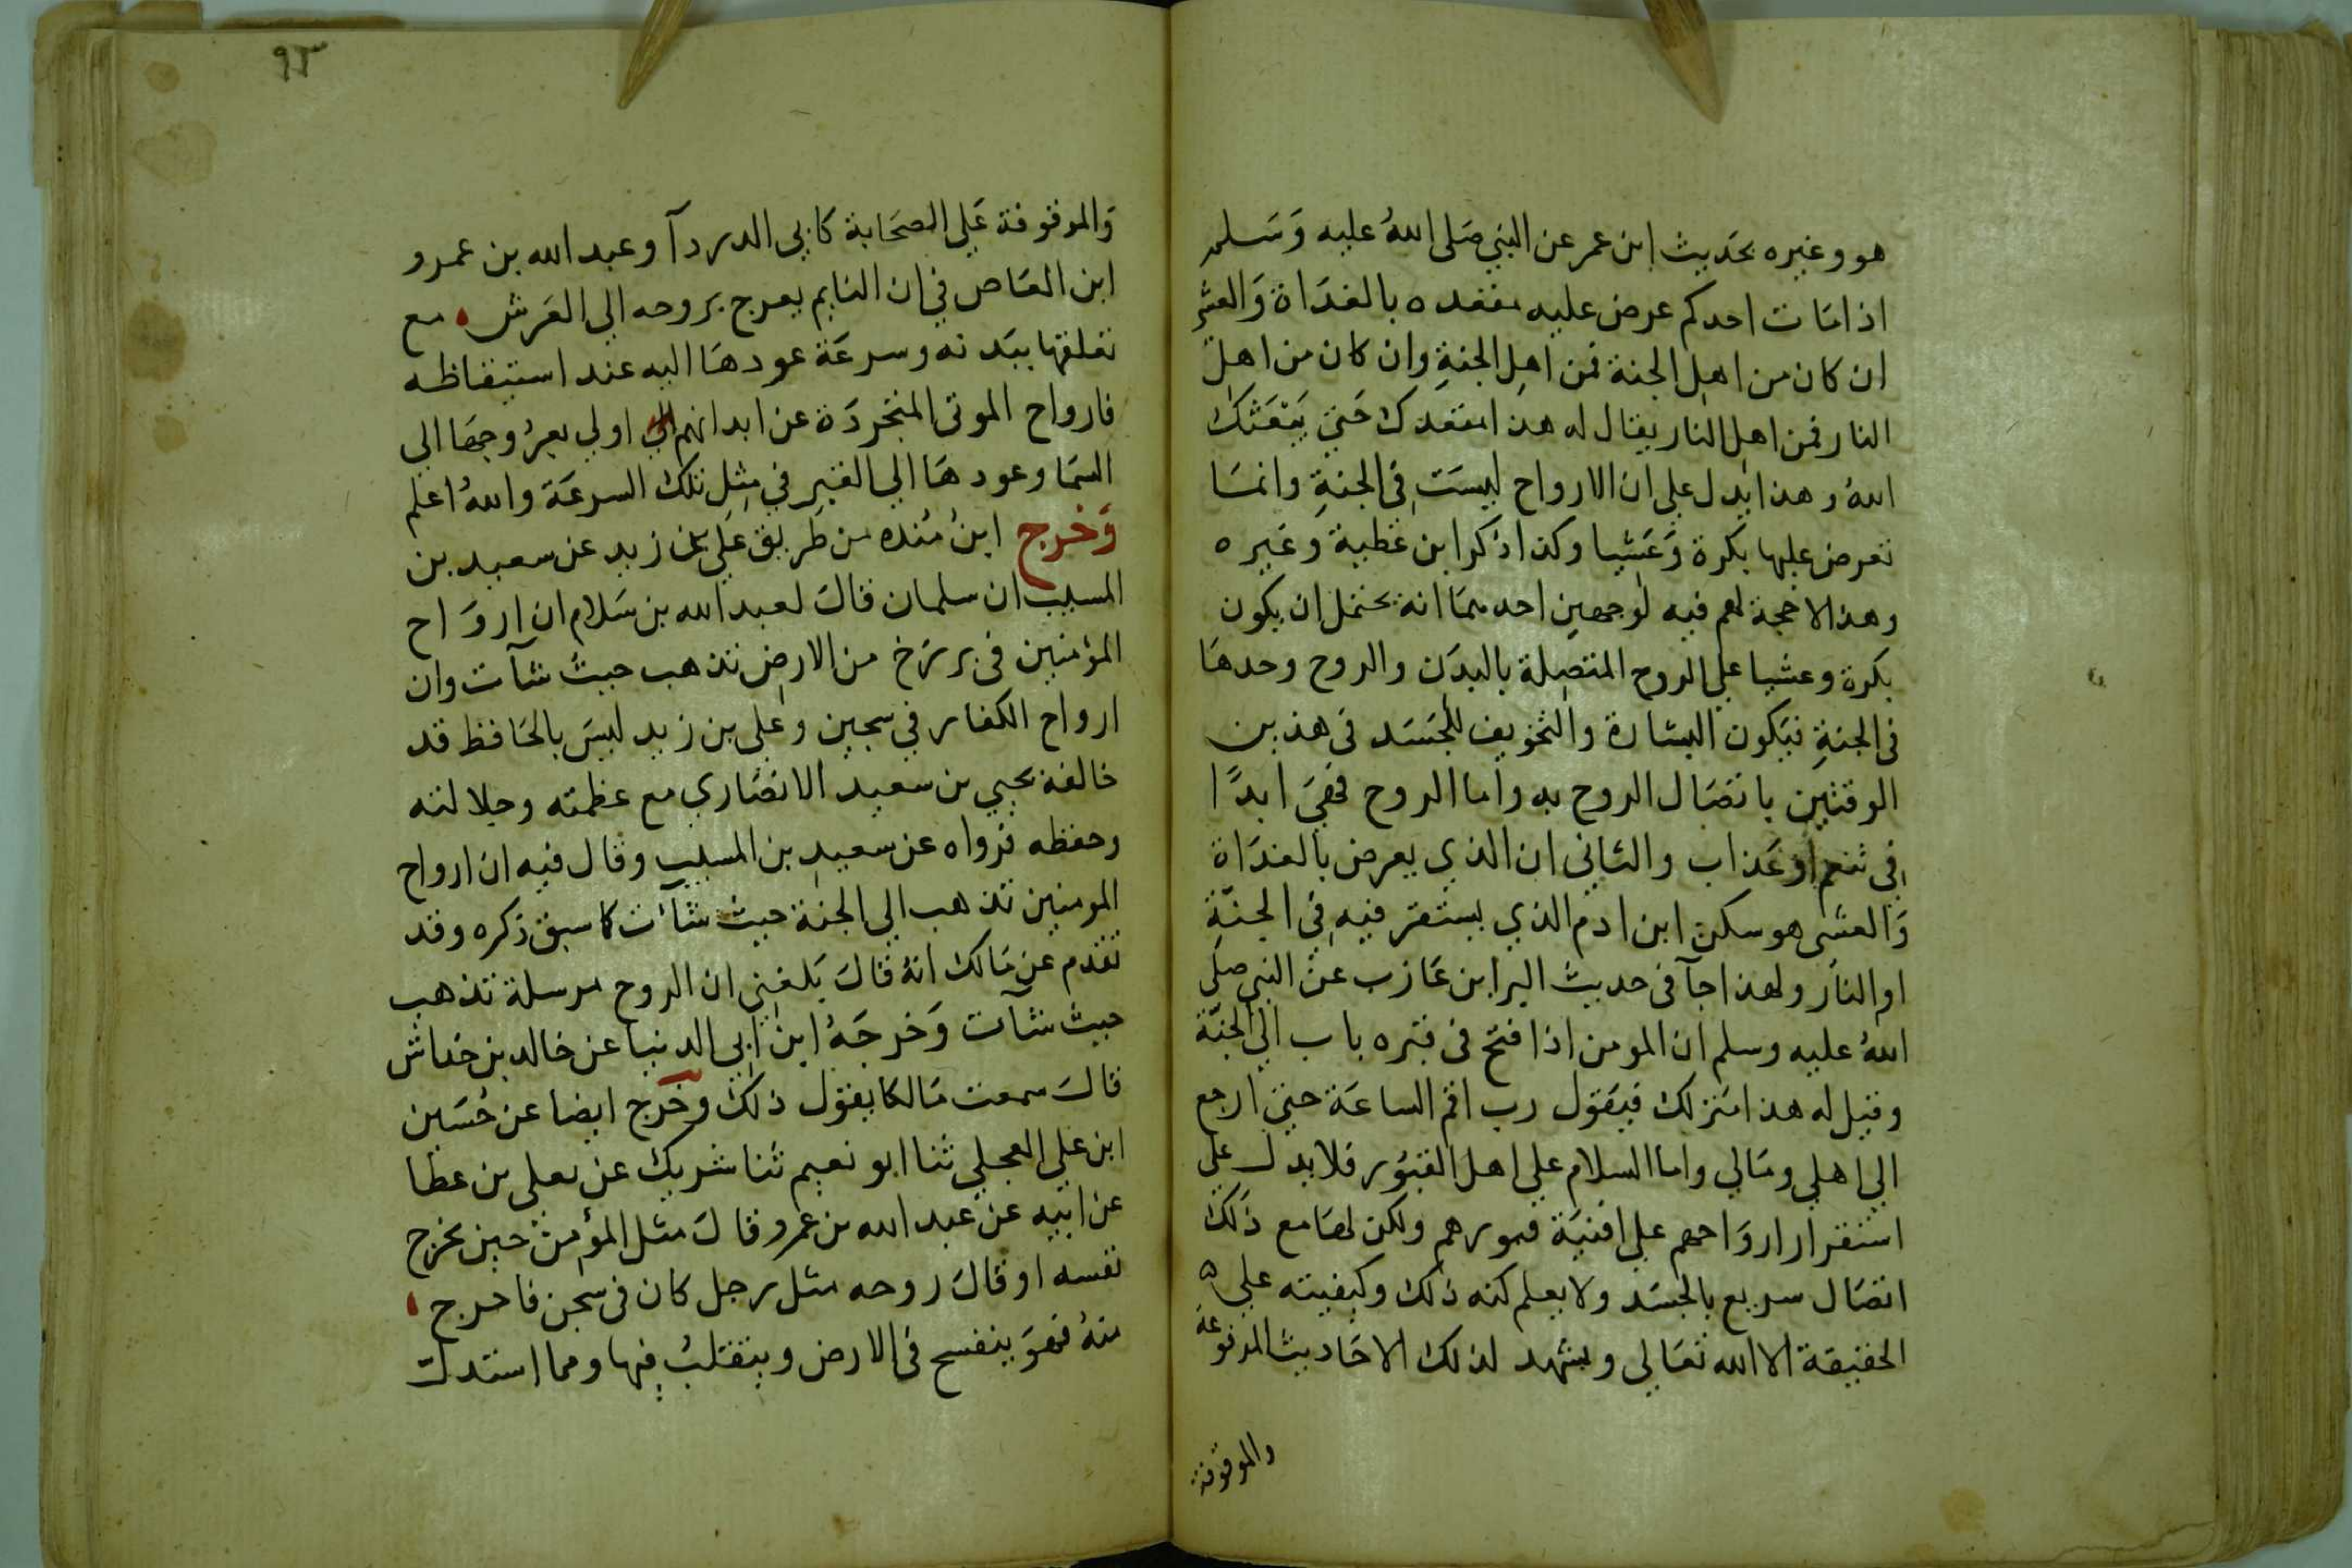 هو وغيره بحديث ابن عمر عن النبي صلى الله عليه وسلم
اذا مات احدكم عرض عليه مقعده بالغداة والعشي
ان كان من اهل الجنة فمن اهل الجنة وان كان من اهل
النار فمن اهل النار يقال له هذا مقعدك حتي يبعثك
الله وهذا يدل علي ان الارواح ليست في الجنة وانما
تعرض عليها بكرة وعشيا وكذا ذكر ابن عطية وغيره
وهذا لا حجة لهم فيه لوجهين احدهما انه يحتمل ان يكون
بكرة وعشيا علي الروح المتصلة بالبدن والروح وحدها
في الجنة فيكون البشارة والتخويف للجسد في هذين
الوقتين باتصال الروح به واما الروح فهي ابدًا
في نعيم او عذاب والثاني ان الذي يعرض بالغداة
والعشى هو سكن ابن ادم الذي يستقر فيه في الجنة
او النار ولهذا جآ في حديث البرا بن عازب عن النبي صلى
الله عليه وسلم ان المومن اذا فتح في قبره باب الي الجنة
وقيل له هذا منزلك فيقول رب اقم الساعة حتي ارجع
الي اهلي ومالي واما السلام علي اهل القبور فلا يدل علي
استقرار ارواحهم علي افنية قبورهم ولكن لها مع ذلك
اتصال سريع بالجسد ولا يعلم كنه ذلك وكيفيته علي
الحقيقة الا الله تعالي ويشهد لذلك الاحاديث المرفوعة
والموقوفة
٩٣
والموقوفة علي الصحابة كابي الدردآ وعبد الله بن عمرو
ابن العاص في ان النايم يعرج بروحه الي العرش مع
تعلقها ببدنه وسرعة عودها اليه عند استيقاظه
فارواح الموتى المتجردة عن ابدانهم اولي بعروجها الى
السما وعودها الي القبر في مثل تلك السرعة والله اعلم
وخرج ابن منده من طريق علي بن زيد عن سعيد بن
المسيب ان سلمان قال لعبد الله بن سلام ان ارواح
المؤمنين في برزخ من الارض تذهب حيث شآت وان
ارواح الكفار في سجين وعلي بن زيد ليس بالحافظ قد
خالفه يحيي بن سعيد الانصاري مع عظمته وجلالته
وحفظه فرواه عن سعيد بن المسيب وقال فيه ان ارواح
المومنين تذهب الي الجنة حيث شآت كما سبق ذكره وقد
تقدم عن مالك انه قال بلغني ان الروح مرسلة تذهب
حيث شآت وخرجه ابن ابي الدنيا عن خالد بن خداش
قال سمعت مالكا يقول ذلك وخرج ايضا عن حسين
ابن علي العجلي ثنا ابو نعيم ثنا شريك عن يعلى بن عطا
عن ابيه عن عبد الله بن عمرو قال مثل المؤمن حين تخرج
نفسه او قال روحه مثل رجل كان في سجن فاخرج
منه فهو ينفسح في الارض ويتقلب فيها ومما استدل